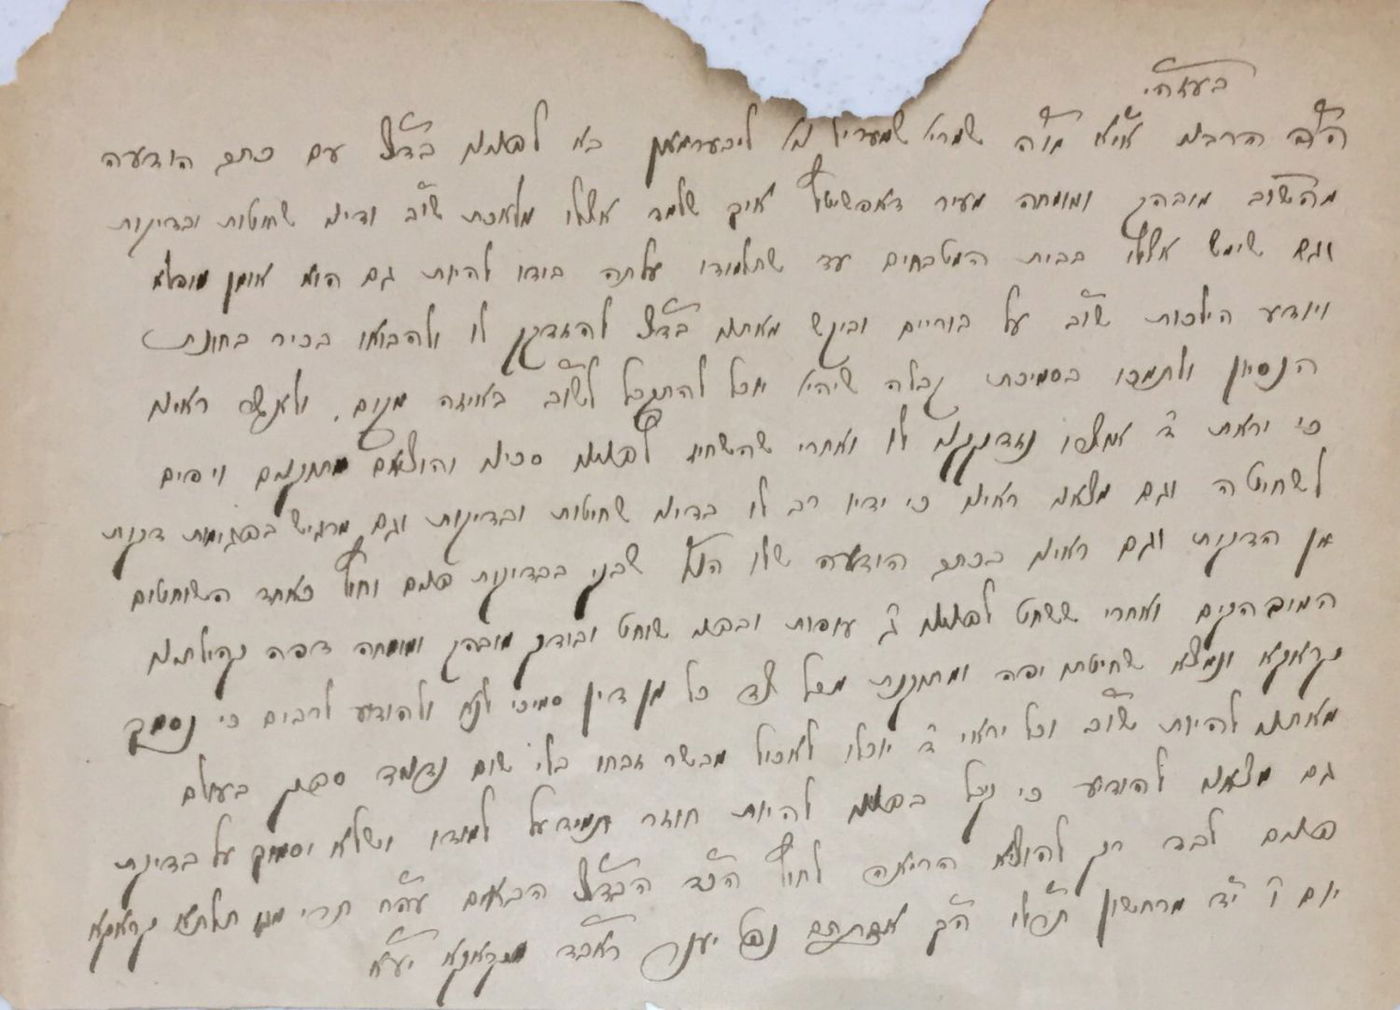 בעזהי
הרב הרבני מו"ה שמריל ליבערמאן בא לפנינו בד"צ עם כתב הודעה
מהשוב מובהק ומומחה מעיר איך שלמד אצלו מלאכת שו"ב ודיני שחיטות ובדיקות
וגם שימש אצלו בבית המטבחים עד שתלמודו עלתה בידו להיות גם הוא אומן מופלא
ויודע הילכות שו"ב על בוריים וביקש מאתנו בד"צ להזדקק לו ולהביאו בכיר בחינת
הנסיון ולתמכו בסמיכת קבלה שיהיא יוכל להתקבל לשו"ב באיזה מקום. ראינו
כי יראת ד' נזדקקנו לו ואחרי שהשחיז לפנינו סכינו והוציאם מתוקנים ויפים
לשחיטה וגם מצאנו ראינו כי ידיו רב לו בדיני שחיטות ובדיקות וגם מרגיש בפגימות דקות
מן הדקות וגם ראינו בכתב הודעה שלו הנ"ל שבקי בבדיקות פנים וחוץ כאחד השוחטים
המובהקים ואחרי ששחט לפנינו ג' עופות ובפני שוחט ובודק מובהק ומומחה דפה קהילתינו
קראקא ונמצא שחיטתו יפה ומתוקנת מכל צד כל מן דין סמיכו לנא ולהודיע לרבים כי נסמך
מאתנו להיות שו"ב וכל יראי ד' יוכלו לאכול מבשר זבחו בלי שום נדנוד ספק בעולם
גם מצאנו להודיע כי קיבל בפנינו להיות חוזר תמיד על למודו ושלא יסמוך על בדיקת
פנים לבד רק להוציא הריאה לחוץ הבד"צ הבאים עה"ח תרי מגו תלתא קראקא
יום ו' י"ד מרחשון הק' ראב"ד מקראקא יע"א